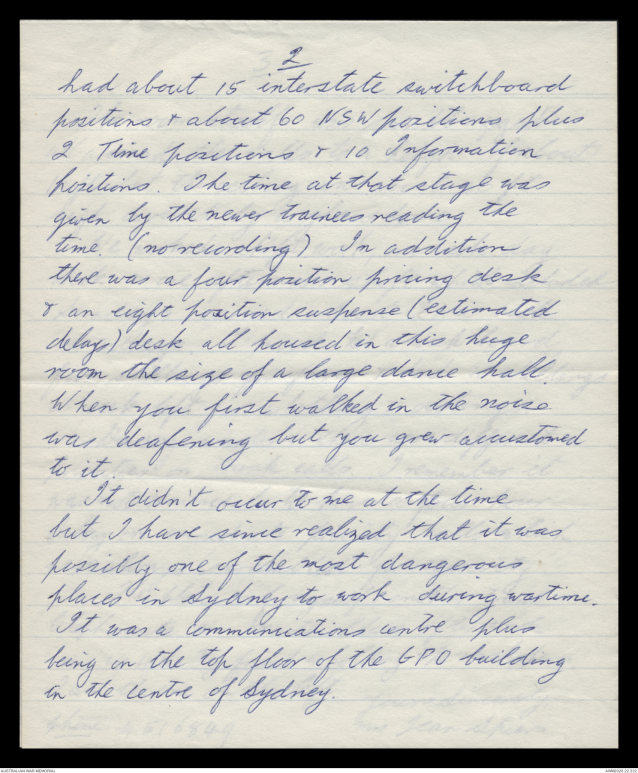 2
had about 15 interstate switchboard
positions & about 60 NSW positions plus
2 Time positions & 10 Information
positions. The time at that stage was
given by the newer trainees reading the
time. (no recording) In addition
there was a four position pricing desk
& an eight position suspense (estimated
delays) desk all housed in this huge
room the size of a large dance hall.
When you first walked in the noise
was deafening but you grew accustomed
to it.
It didn't occur to me at the time
but I have since realized that it was
possibly one of the most dangerous
places in Sydney to work during wartime.
It was a communications centre plus
being on the top floor of the GPO building
in the centre of Sydney.
AUSTRALIAN WAR MEMORIAL